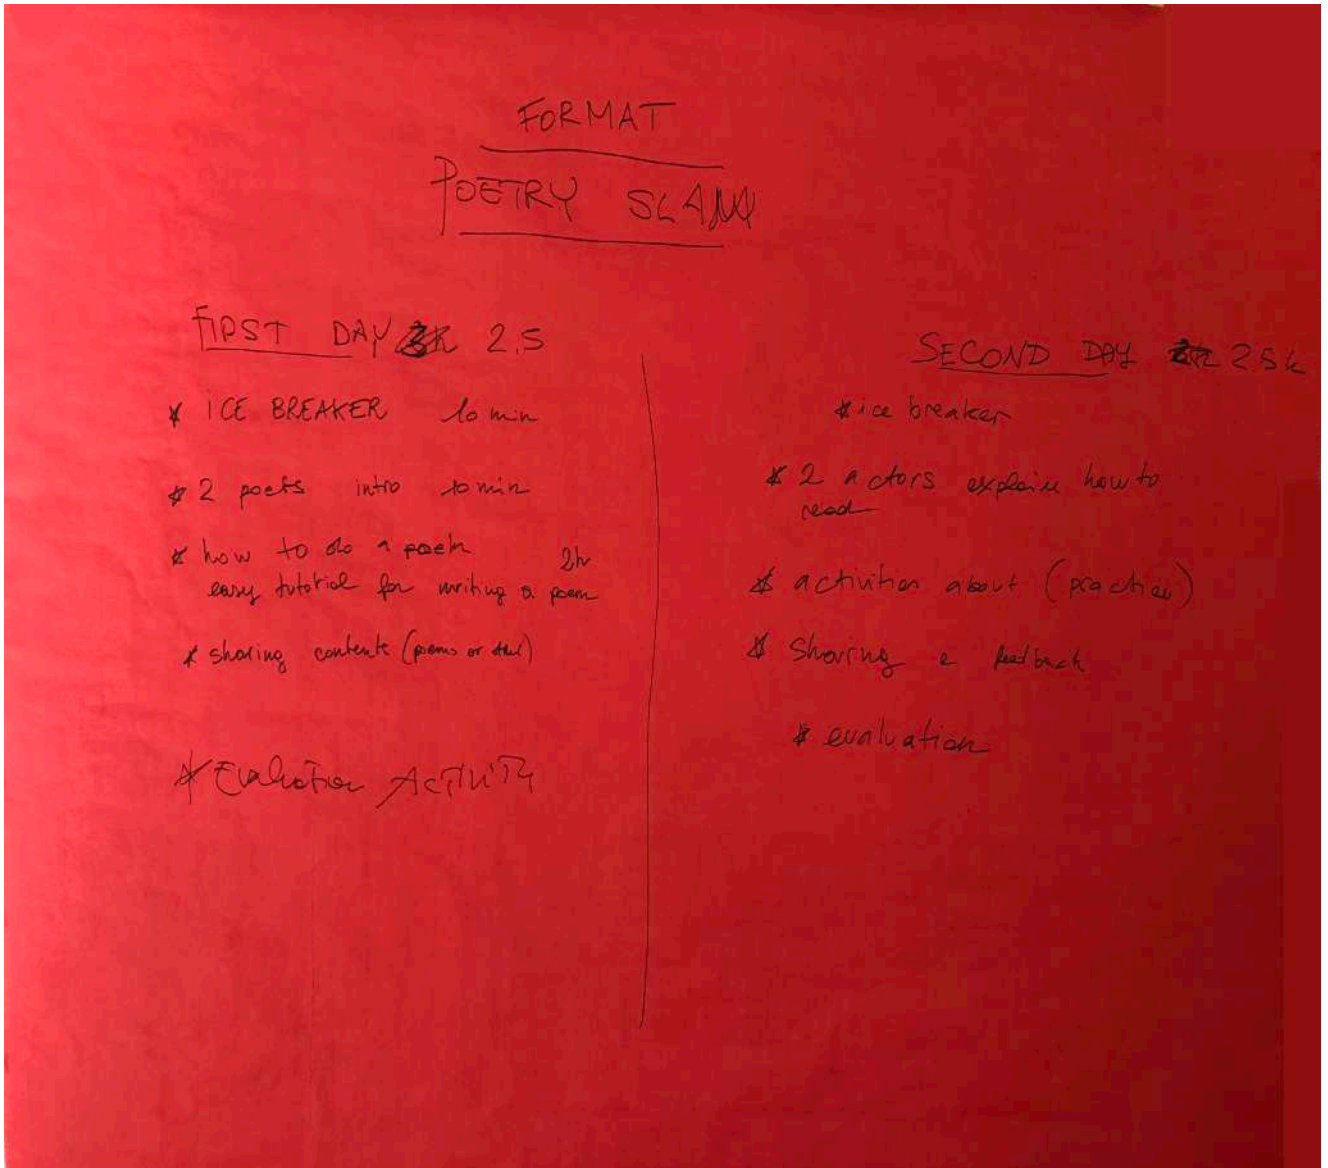 FORMAT
POETRY SLAM
FIRST DAY 2.5
* ICE BREAKER 10 min
* 2 poets intro 10 min
* how to do a poem 2h
easy tutorial for writing a poem
* sharing contents (poems or other)
* Evaluation ACTIVITY
SECOND DAY 2.5 h
* ice breaker
* 2 actors explain how to
read
* activities about (practice)
* Sharing e feedback
* evaluation